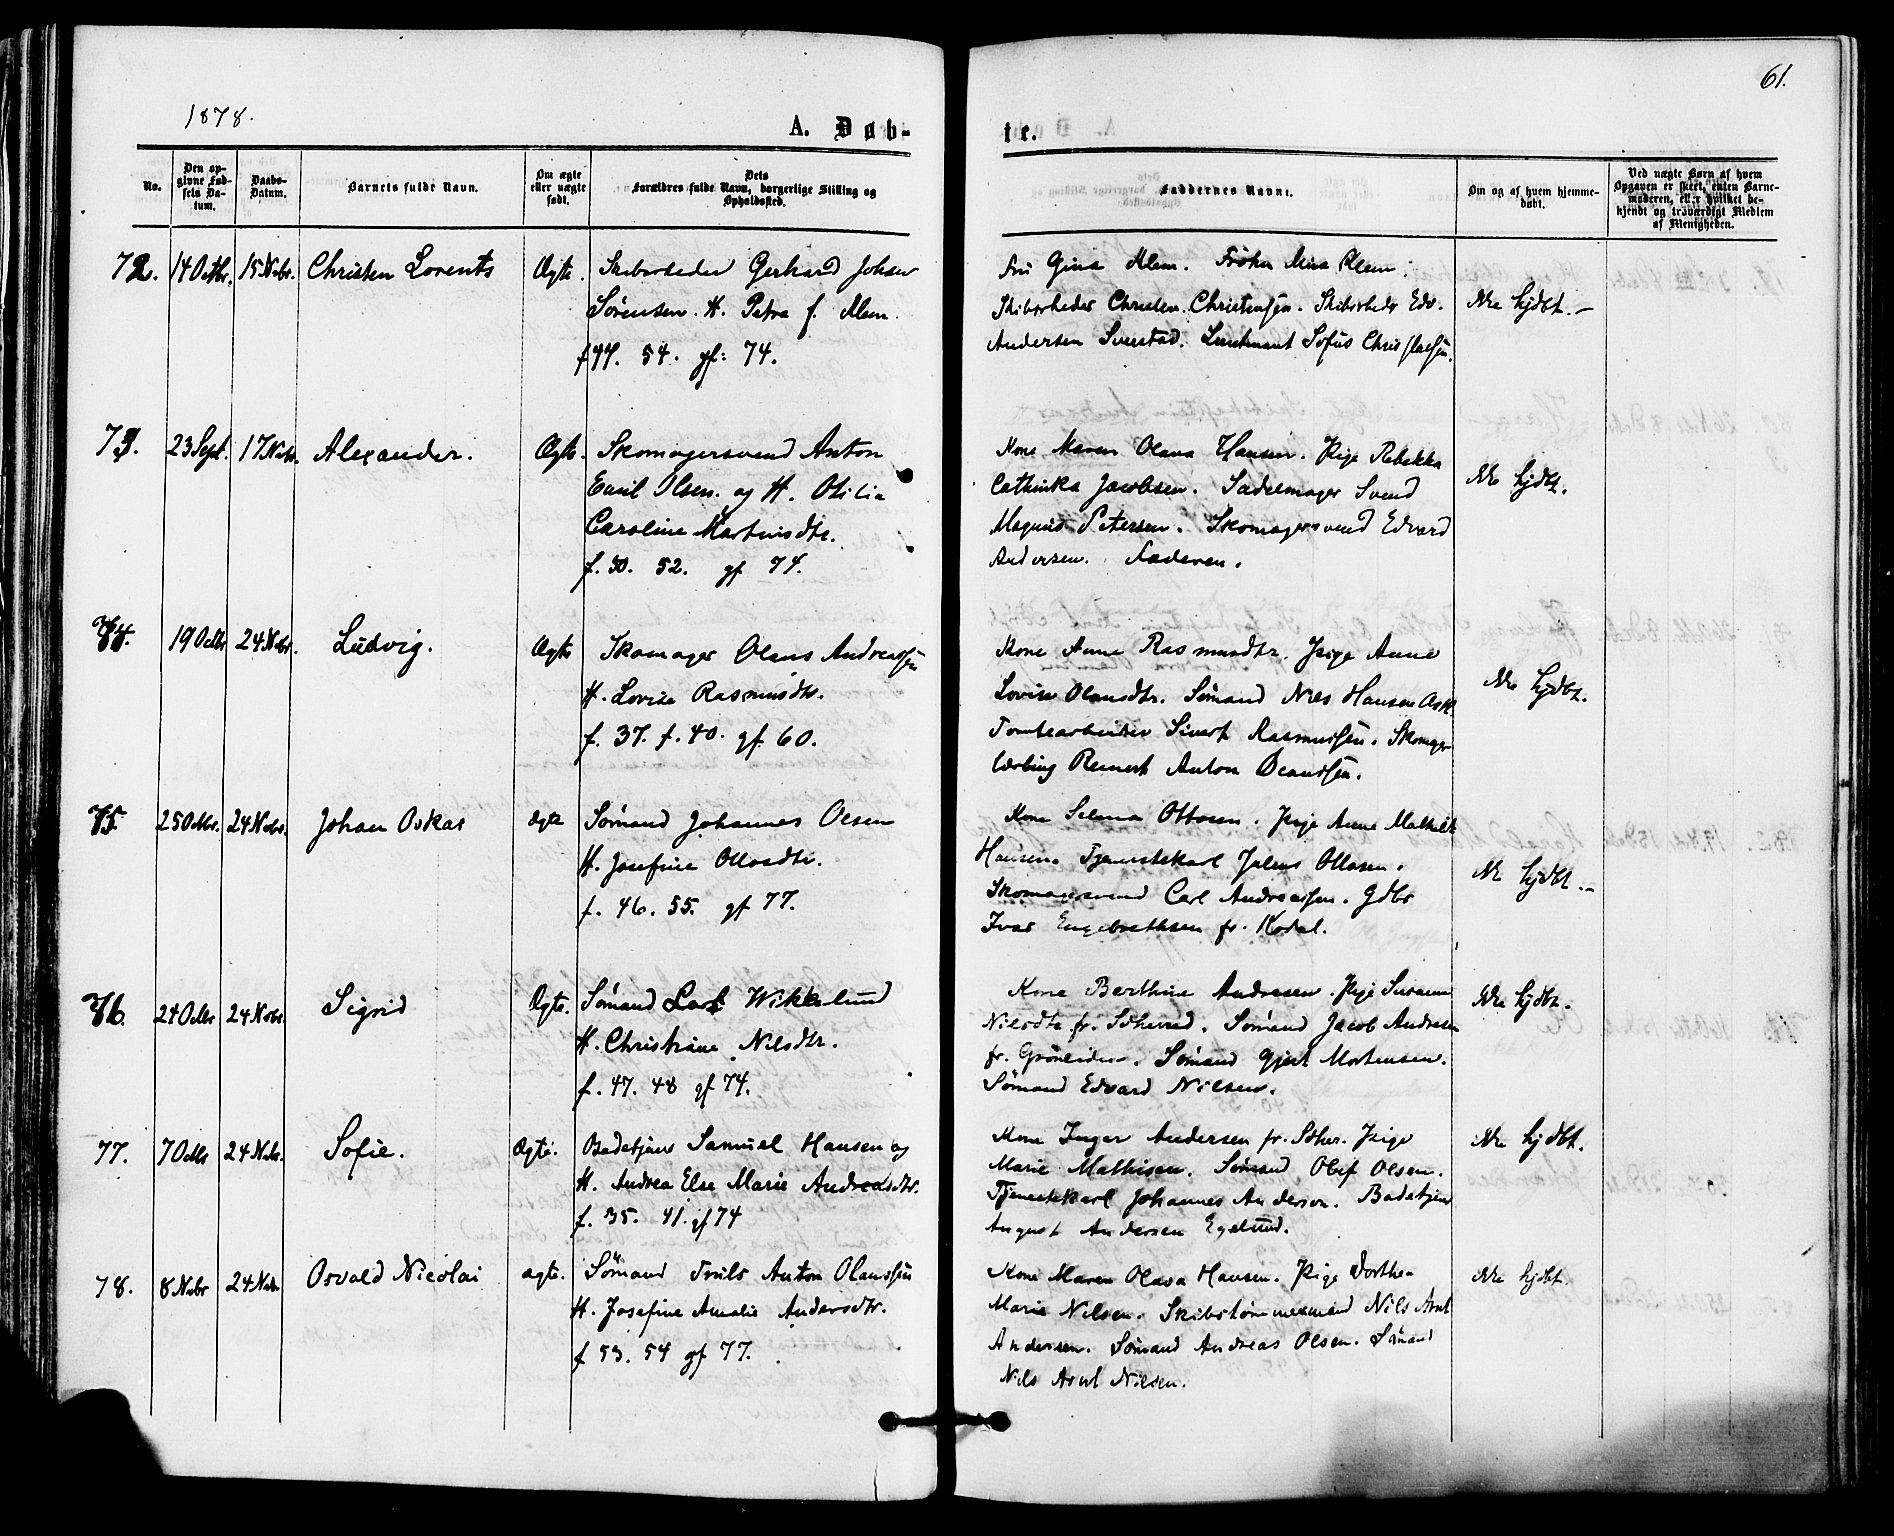 1878.
A. Døb-
No.
Den op-
givne Fød-
sels Da-
tum.
Daabs-
Datum.
Barnets fulde Navn.
Om ægte
eller uægte
født.
Dets
Forældres fulde Navn, borgerlige Stilling og
Opholdssted.
72. 14 Octbr. 15 Nvbr. Christen Lorents Ægte. Skibsrheder Gerhard Johan
Sørensen. H. Petra f. Klem.
54. gf: 74.
73. 23 Sept. 17 Nvbr. Alexander. Ægte. Skomagersvend Anton
Emil Olsen. og H. Otilia
Caroline Martinsdtr.
f. 50. 52. gf 74.
74. 19 Octbr 24 Nvbr. Ludvig. Ægte Skomager Olaus Andreassen
H. Lovise Rasmusdtr.
f. 37. f. 40. gf. 60.
75. 25 Octbr. 24 Nvbr. Johan Oskar ægte Sømand Johannes Olsen
H. Josefine Ottosdtr.
f. 46. 55. gf 77.
76. 24 Octbr 24 Nvbr. Sigrid Ægte. Sømand Lars Wikklund
H. Christiane Nilsdtr.
f. 47. 48 gf 74.
77. 7 Octbr 24 Nvbr. Sofie. Ægte. Badetjener Samuel Hansen og
H. Andrea Else Marie Andreasdtr.
f. 35. 41. gf 74
78. 8 Nvbr 24 Nvbr. Osvald Nicolai ægte. Sømand Truls Anton Olaussen
H. Josefine Amalie Andersdtr.
f 53. 54 gf 77.
61.
te.
Faddernes Navne.
Om og af hvem hjemme-
døbt.
Ved uægte Børn af hvem
Opgaven er skeet, enten Barne-
moderen, eller hvilket be-
kjendt og troværdigt Medlem
af Menigheden.
Fru Gina Klem. Frøken Mina Klem.
Skibsrheder Christen Christensen. Skibsrheder Edv. Ikke hjdbt.
Andersen Sverstad. Lieutnant Sofus Christensen.
Kone Maren Olava Hansen. Pige Rebekka
Cathinka Jacobsen. Sadelmager Svend Ikke hjdbt.
Magnus Petersen. Skomagersvend Edvard
Andersen. Faderen.
Kone Anne Rasmusdtr. Pige Anne
Lovise Olausdtr. Sømand Nils Hansen Ask. Ikke hjdbt.
Tomtearbeider Sivert Rasmussen. Skomager-
lærling Reinert Anton Olaussen.
Kone Selma Ottosen. Pige Anne Mathilde
Hansen. Tjenestekarl Julius Ottosen. Ikke hjdbt.
Skomagersvend Carl Andreassen. Gdbr
Ivar Engebrethsen fr. Kodal.
Kone Berthine Andresen. Pige Susanne Ikke hjdbt.
Nilsdtr fr. Sdherred. Sømand Jacob Andresen
fr. Grønliden. Sømand Gjert Mortensen.
Sømand Edvard Nilsen.
Kone Inger Andersen fr. Sdher. Pige Ikke hjdbt.
Marie Mathisen. Sømand Olif Olsen.
Tjenestekarl Johannes Anderson. Badetjener
August Andersen Egelund.
Kone Maren Olava Hansen. Pige Dorthe Ikke hjdbt.
Marie Nilsen. Skibstømmermand Nils Arnt
Andersen. Sømand Andreas Olsen. Sømand
Nils Arnt Nilsen.